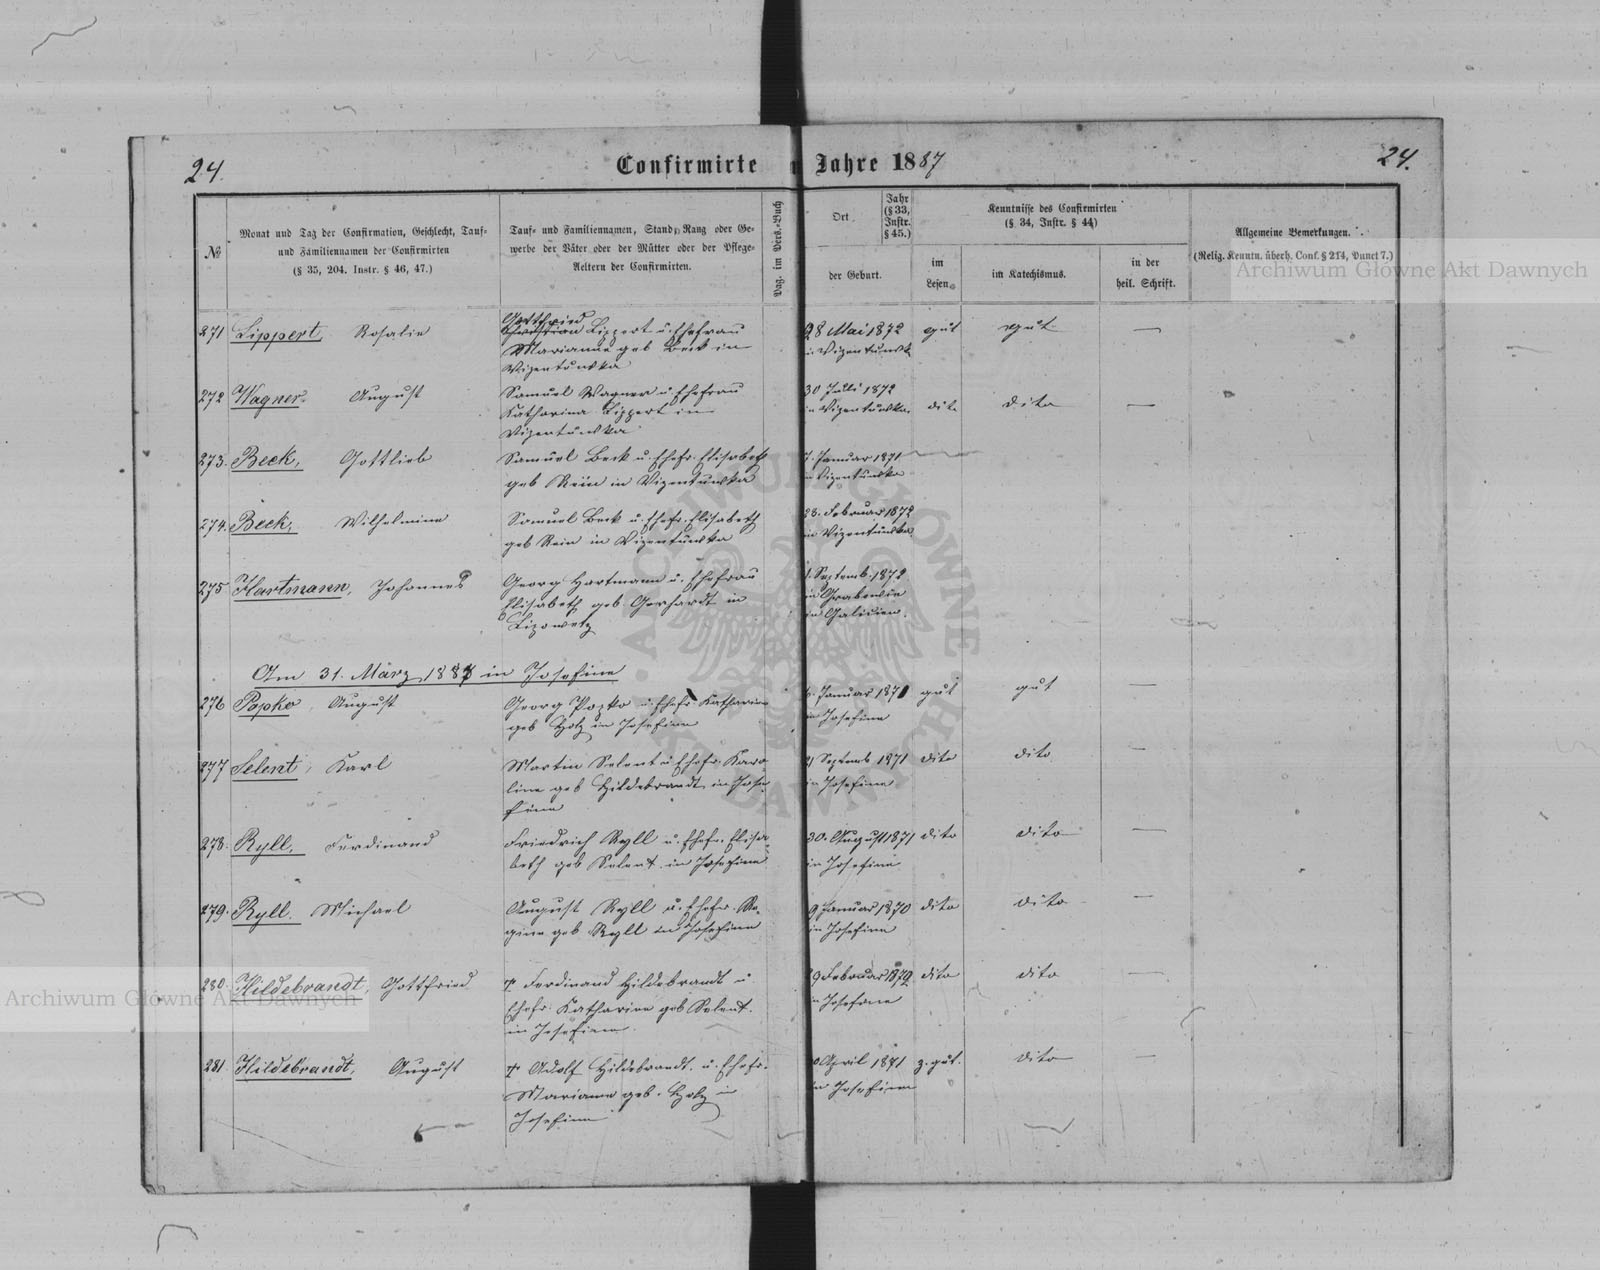 24.
Confirmirte
Jahre 1887
24.
№
Monat und Tag der Confirmation, Geschlecht, Tauf-
und Familiennamen der Confirmirten
(§ 35, 204. Instr. § 46, 47.)
Tauf- und Familiennamen, Stand, Rang oder Ge-
werbe der Väter oder der Mütter oder der Pflege-
Aeltern der Confirmirten.
Pag. im Pers.-Buch
Ort
Jahr
(§ 33,
Instr.
§ 45.)
der Geburt.
Kenntnisse des Confirmirten
(§ 34, Instr. § 44)
im
Lesen.
im Katechismus.
in der
heil. Schrift.
Allgemeine Bemerkungen.
(Relig. Kenntn. überh. Conf. § 214, Punct 7.)
Archiwum Główne Akt Dawnych
271 Lippert, Rosalie
Gottfried
Christian Lippert u. Ehefrau
Marianne geb Beck in
Wizentuwka
28 Mai 1872
in Wizentuwk
gut
gut
—
272 Wagner August
Samuel Wagner u Ehefrau
Katharina Lippert in
Wizentuwka
30 Juli 1872
in Wizentuwka
dito
dito
—
273. Beck, Gottlieb
Samuel Beck u. Ehefr. Elisabeth
geb Rein in Wizentuwka
7. Januar 1871
in Wizentuwka
274. Beck, Wilhelmine
Samuel Beck u. Ehefr. Elisabeth
geb Rein in Wizentuwka
28. Februar 1872
in Wizentuwka
275 Hartmann, Johannes
Georg Hartmann u. Ehefrau
Elisabeth geb Gerhardt in
Lipowetz
1. Septemb. 1872
in
in Galizien.
Am 31. März 1887 in Josefine
276 Popko, August
Georg Popko u. Ehefr Katharine
geb Holz in Josefine
Januar 1871
in Josefine
gut
gut
—
277 Selent, Karl
Martin Selent u Ehefr. Karo-
line geb Hildebrandt, in Jose-
fine
21 Septemb 1871
in Josefine
dito
dito
—
278. Ryll, Ferdinand
Friedrich Ryll u. Ehefr. Elisa-
beth geb Selent in Josefine
30. August 1871
in Josefine
dito
dito
—
279. Ryll. Michael
August Ryll u. Ehefr. Re-
gine geb Ryll in Josefine
9 Januar 1870
in Josefine
dito
dito
—
280. Hildebrandt, Gottfried
† Ferdinand Hildebrandt u
Ehefr. Katharine geb Selent.
in Josefine.
Februar 1872
in Josefine
dito
dito
—
281. Hildebrandt, August
† Adolf Hildebrandt. u. Ehefr.
Marianne geb. Holz in
Josefine
April 1871
in Josefine
z. gut.
dito
—
Archiwum Główne Akt Dawnych
ARCHIWUM GŁÓWNE AKT DAWNYCH